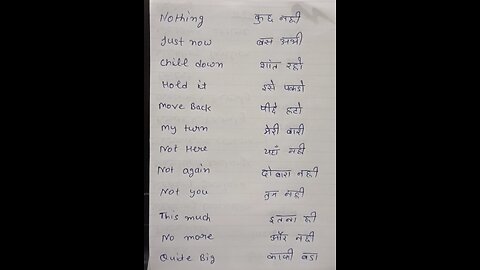 Nothing कुछ नही
Just now बस अभी
Chill down शांत रहो
Hold it इसे पकडो
Move Back पीछे हटो
My turn मेरी बारी
Not Here यहाँ नही
Not again दोबारा नही
Not you तुम नही
This much इतना ही
No more और नही
Quite Big काफी बडा